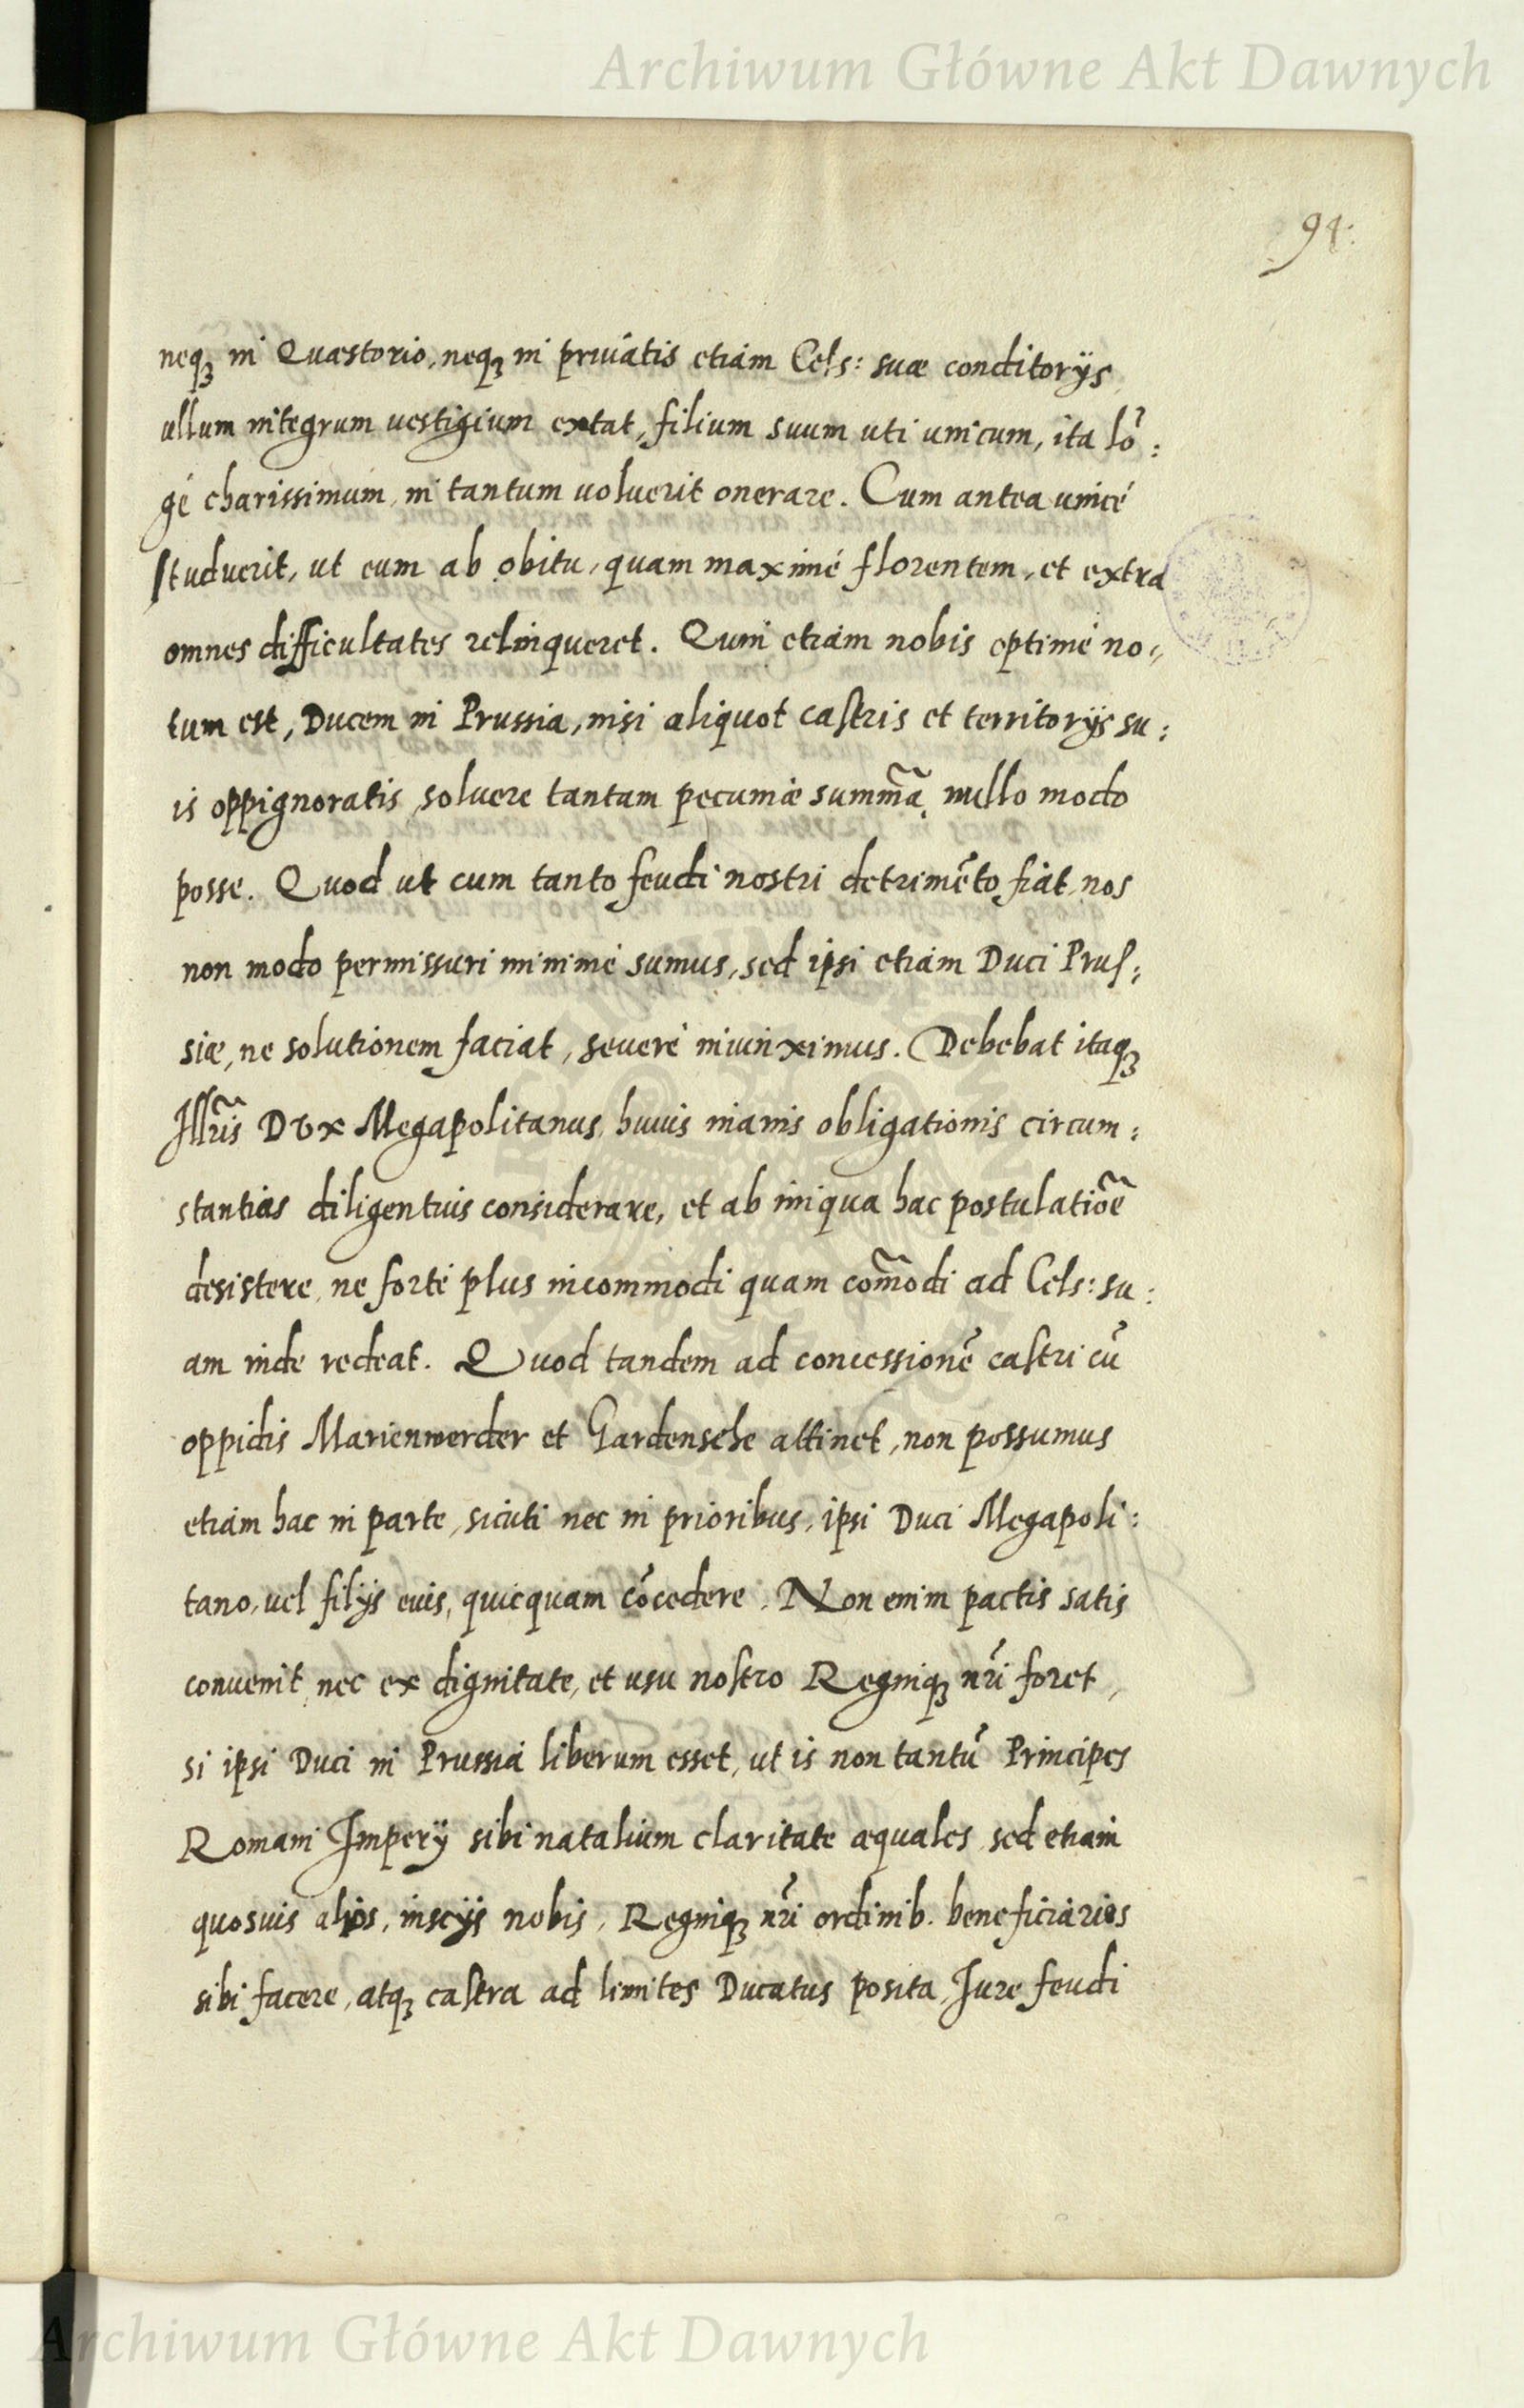 Archiwum Główne Akt Dawnych
94.
neqꝫ in Quæstorio, neqꝫ in priuatis etiam Cels: suæ conditorijs
ullum integrum uestigium extat, filium suum uti unicum, ita lō:
gè charissimum, in tantum uoluerit onerare. Cum antea unicè
studuerit, ut eum ab obitu, quam maximè florentem, et extra
omnes difficultates relinqueret. Quin etiam nobis optimè no=
tum est, Ducem in Prussia, nisi aliquot castris et territorijs su:
is oppignoratis soluere tantam pecuniæ summā, nullo modo
posse. Quod ut cum tanto feudi nostri detrimēto fiat, nos
non modo permissuri minimè sumus, sed ipsi etiam Duci Prus:
siæ, ne solutionem faciat, seuerè iniunximus. Debebat itaqꝫ
Illr̃is Dux Megapolitanus, huius inanis obligationis circum:
stantias diligentius considerare, et ab iniqua hac postulatiōe
desistere, ne fortè plus incommodi quam com̃odi ad Cels: su:
am inde redeat. Quod tandem ad concessionē castri cū
oppidis Marienwerder et Gardensche attinet, non possumus
etiam hac in parte, sicuti nec in prioribus, ipsi Duci Megapoli:
tano, uel filijs euis, quicquam cōcedere. Non enim pactis satis
conuenit, nec ex dignitate, et usu nostro Regniqꝫ nr̃i foret,
si ipsi Duci in Prussia liberum esset, ut is non tantū Principes
Romani Imperij sibi natalium claritate æquales, sed etiam
quosuis alios, inscijs nobis, Regniqꝫ nr̃i ordinib. beneficiarios
sibi facere, atqꝫ castra ad limites Ducatus posita, Iure feudi
Archiwum Główne Akt Dawnych